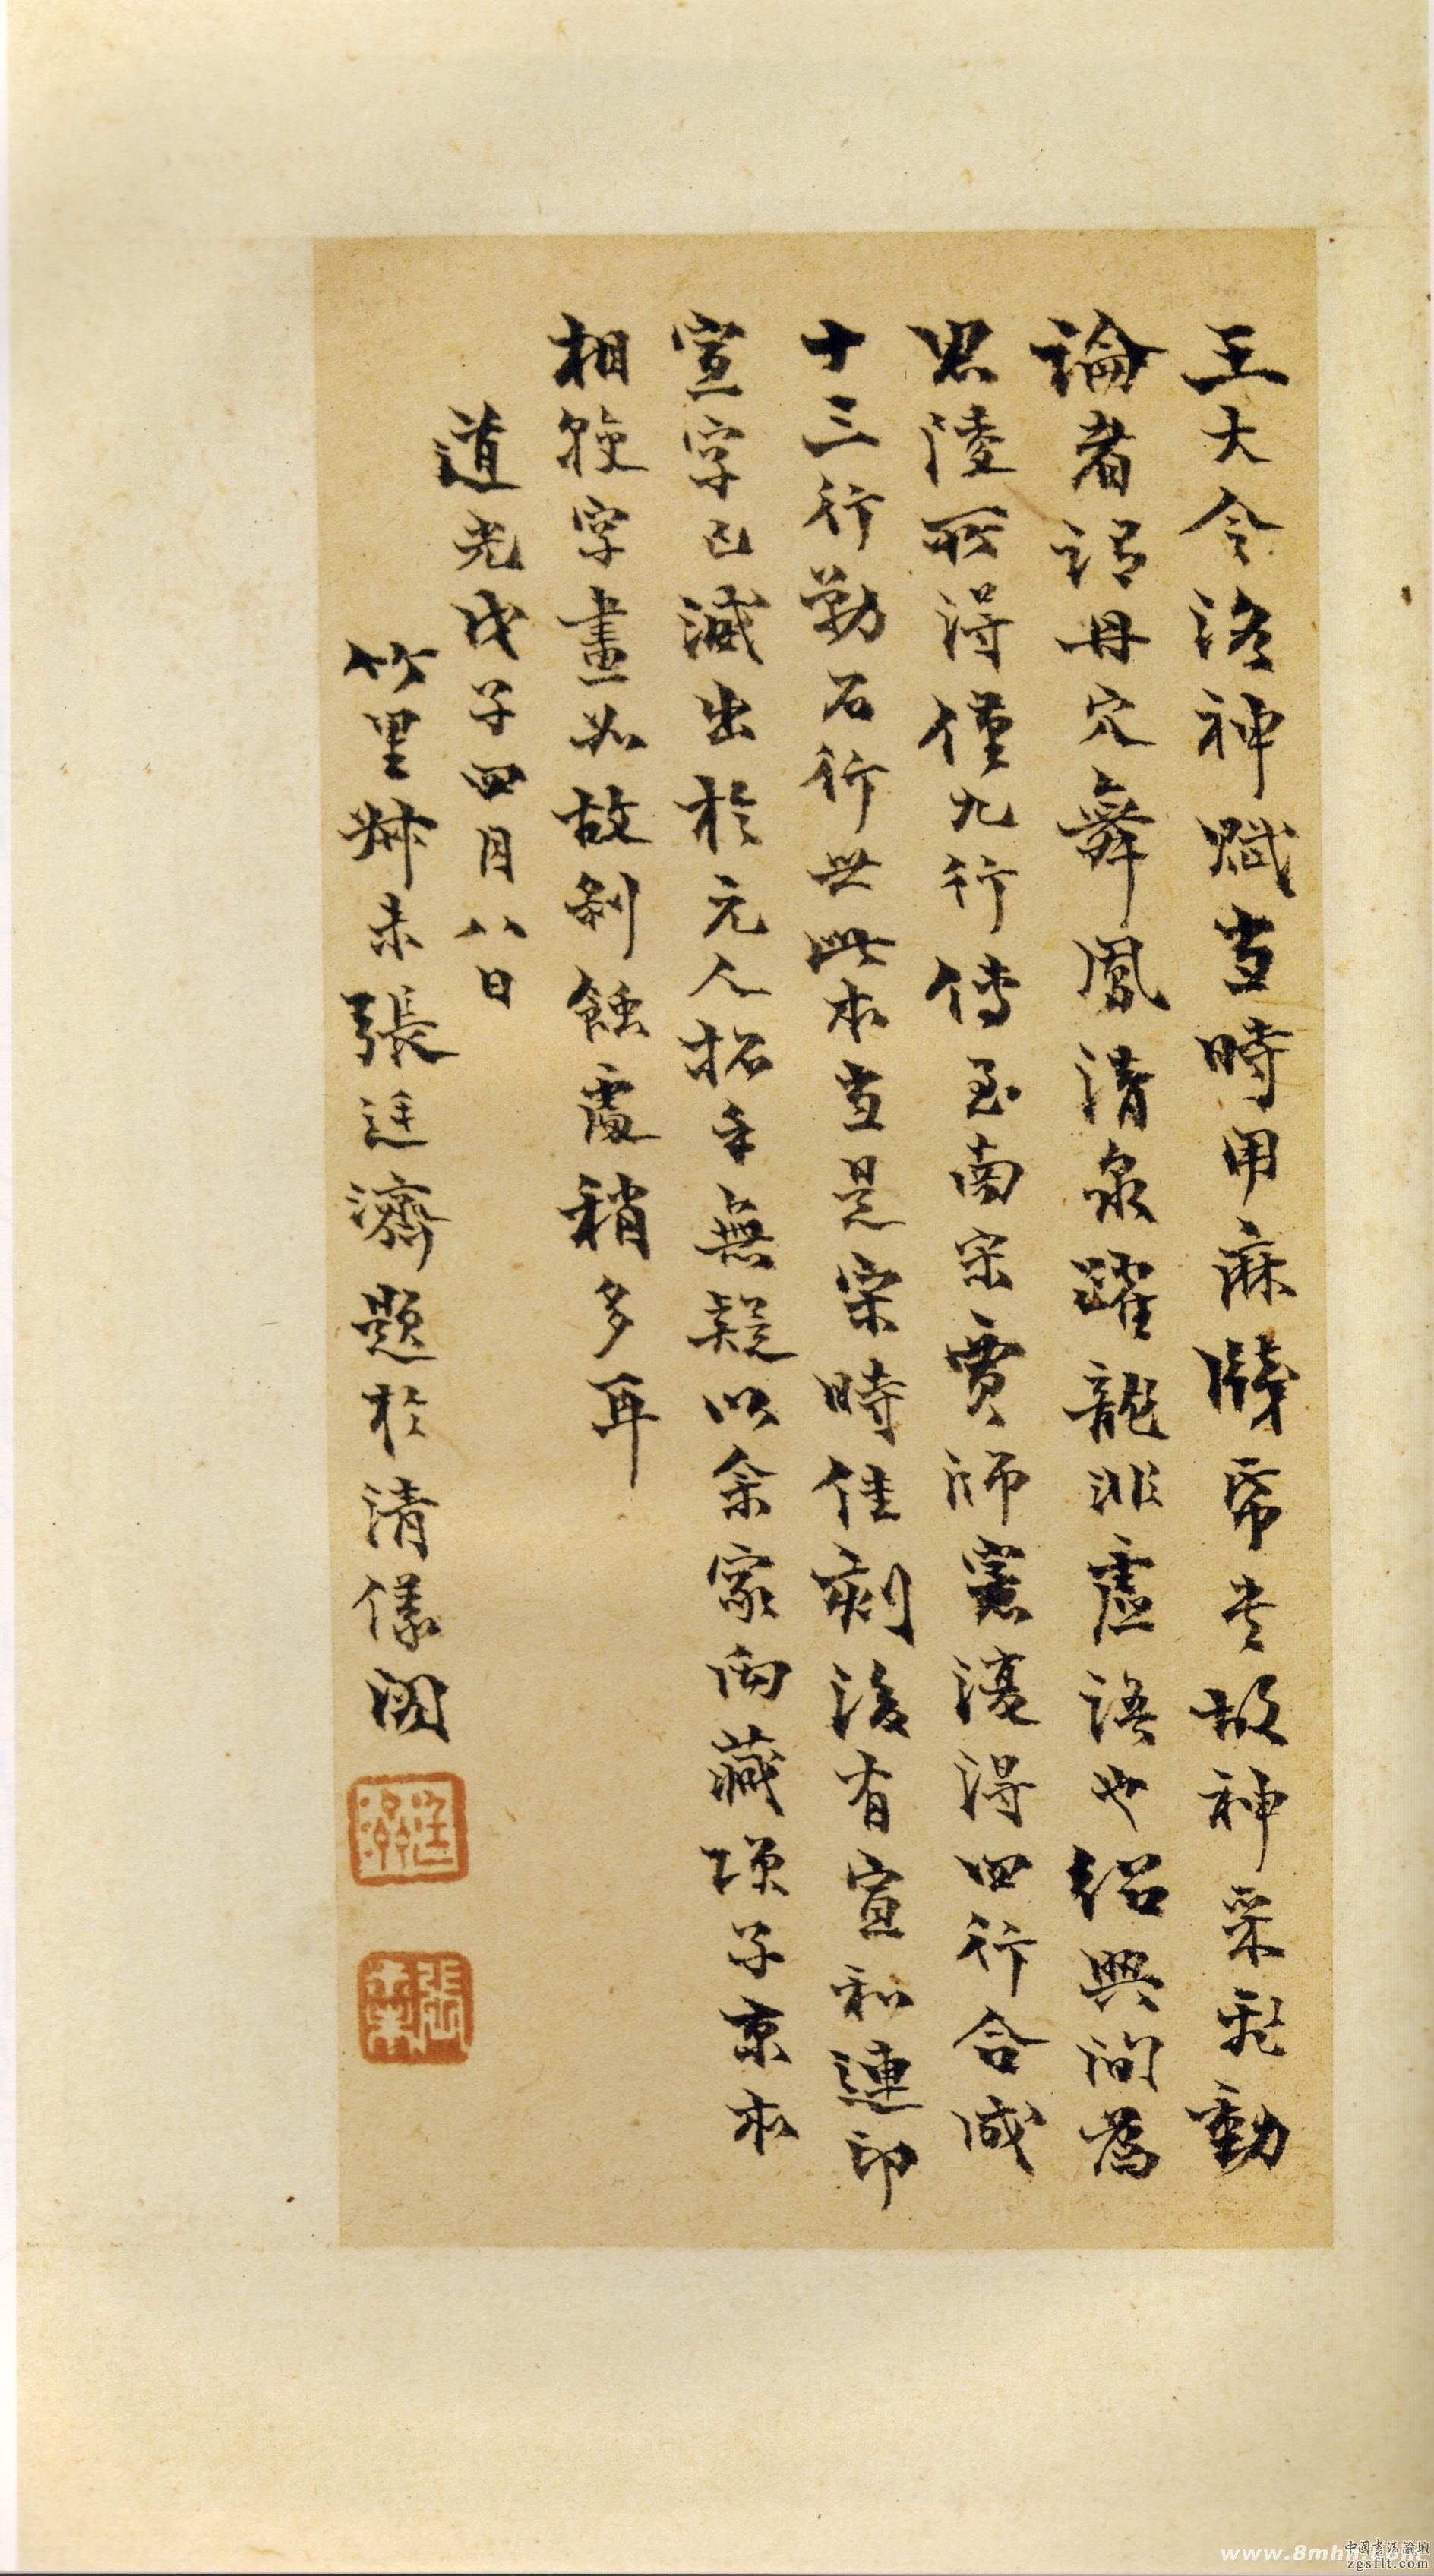 王大令洛神賦當時用麻牋帋書故神采飛動
論者謂丹穴舞鳳清泉躍龍非虛語也紹興間爲
思陵所得僅九行傳至南宋賈師憲復得四行合成
十三行勒石行世此本當是宋時佳刻後有宣和連印
宣字已減出於元人拓手無疑以余家両藏項子京本
相較字畫如故剝蝕處稍多耳
道光戊子四月八日
竹里叔未張廷濟題於清儀閣
廷濟
張叔未
中國書法論壇
www.8mhh.com
zgsflt.com